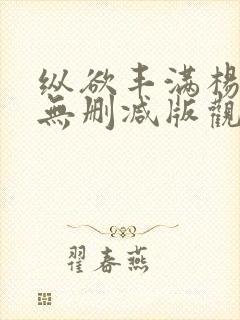 纵欲丰满杨
無删减版觀
翟春燕